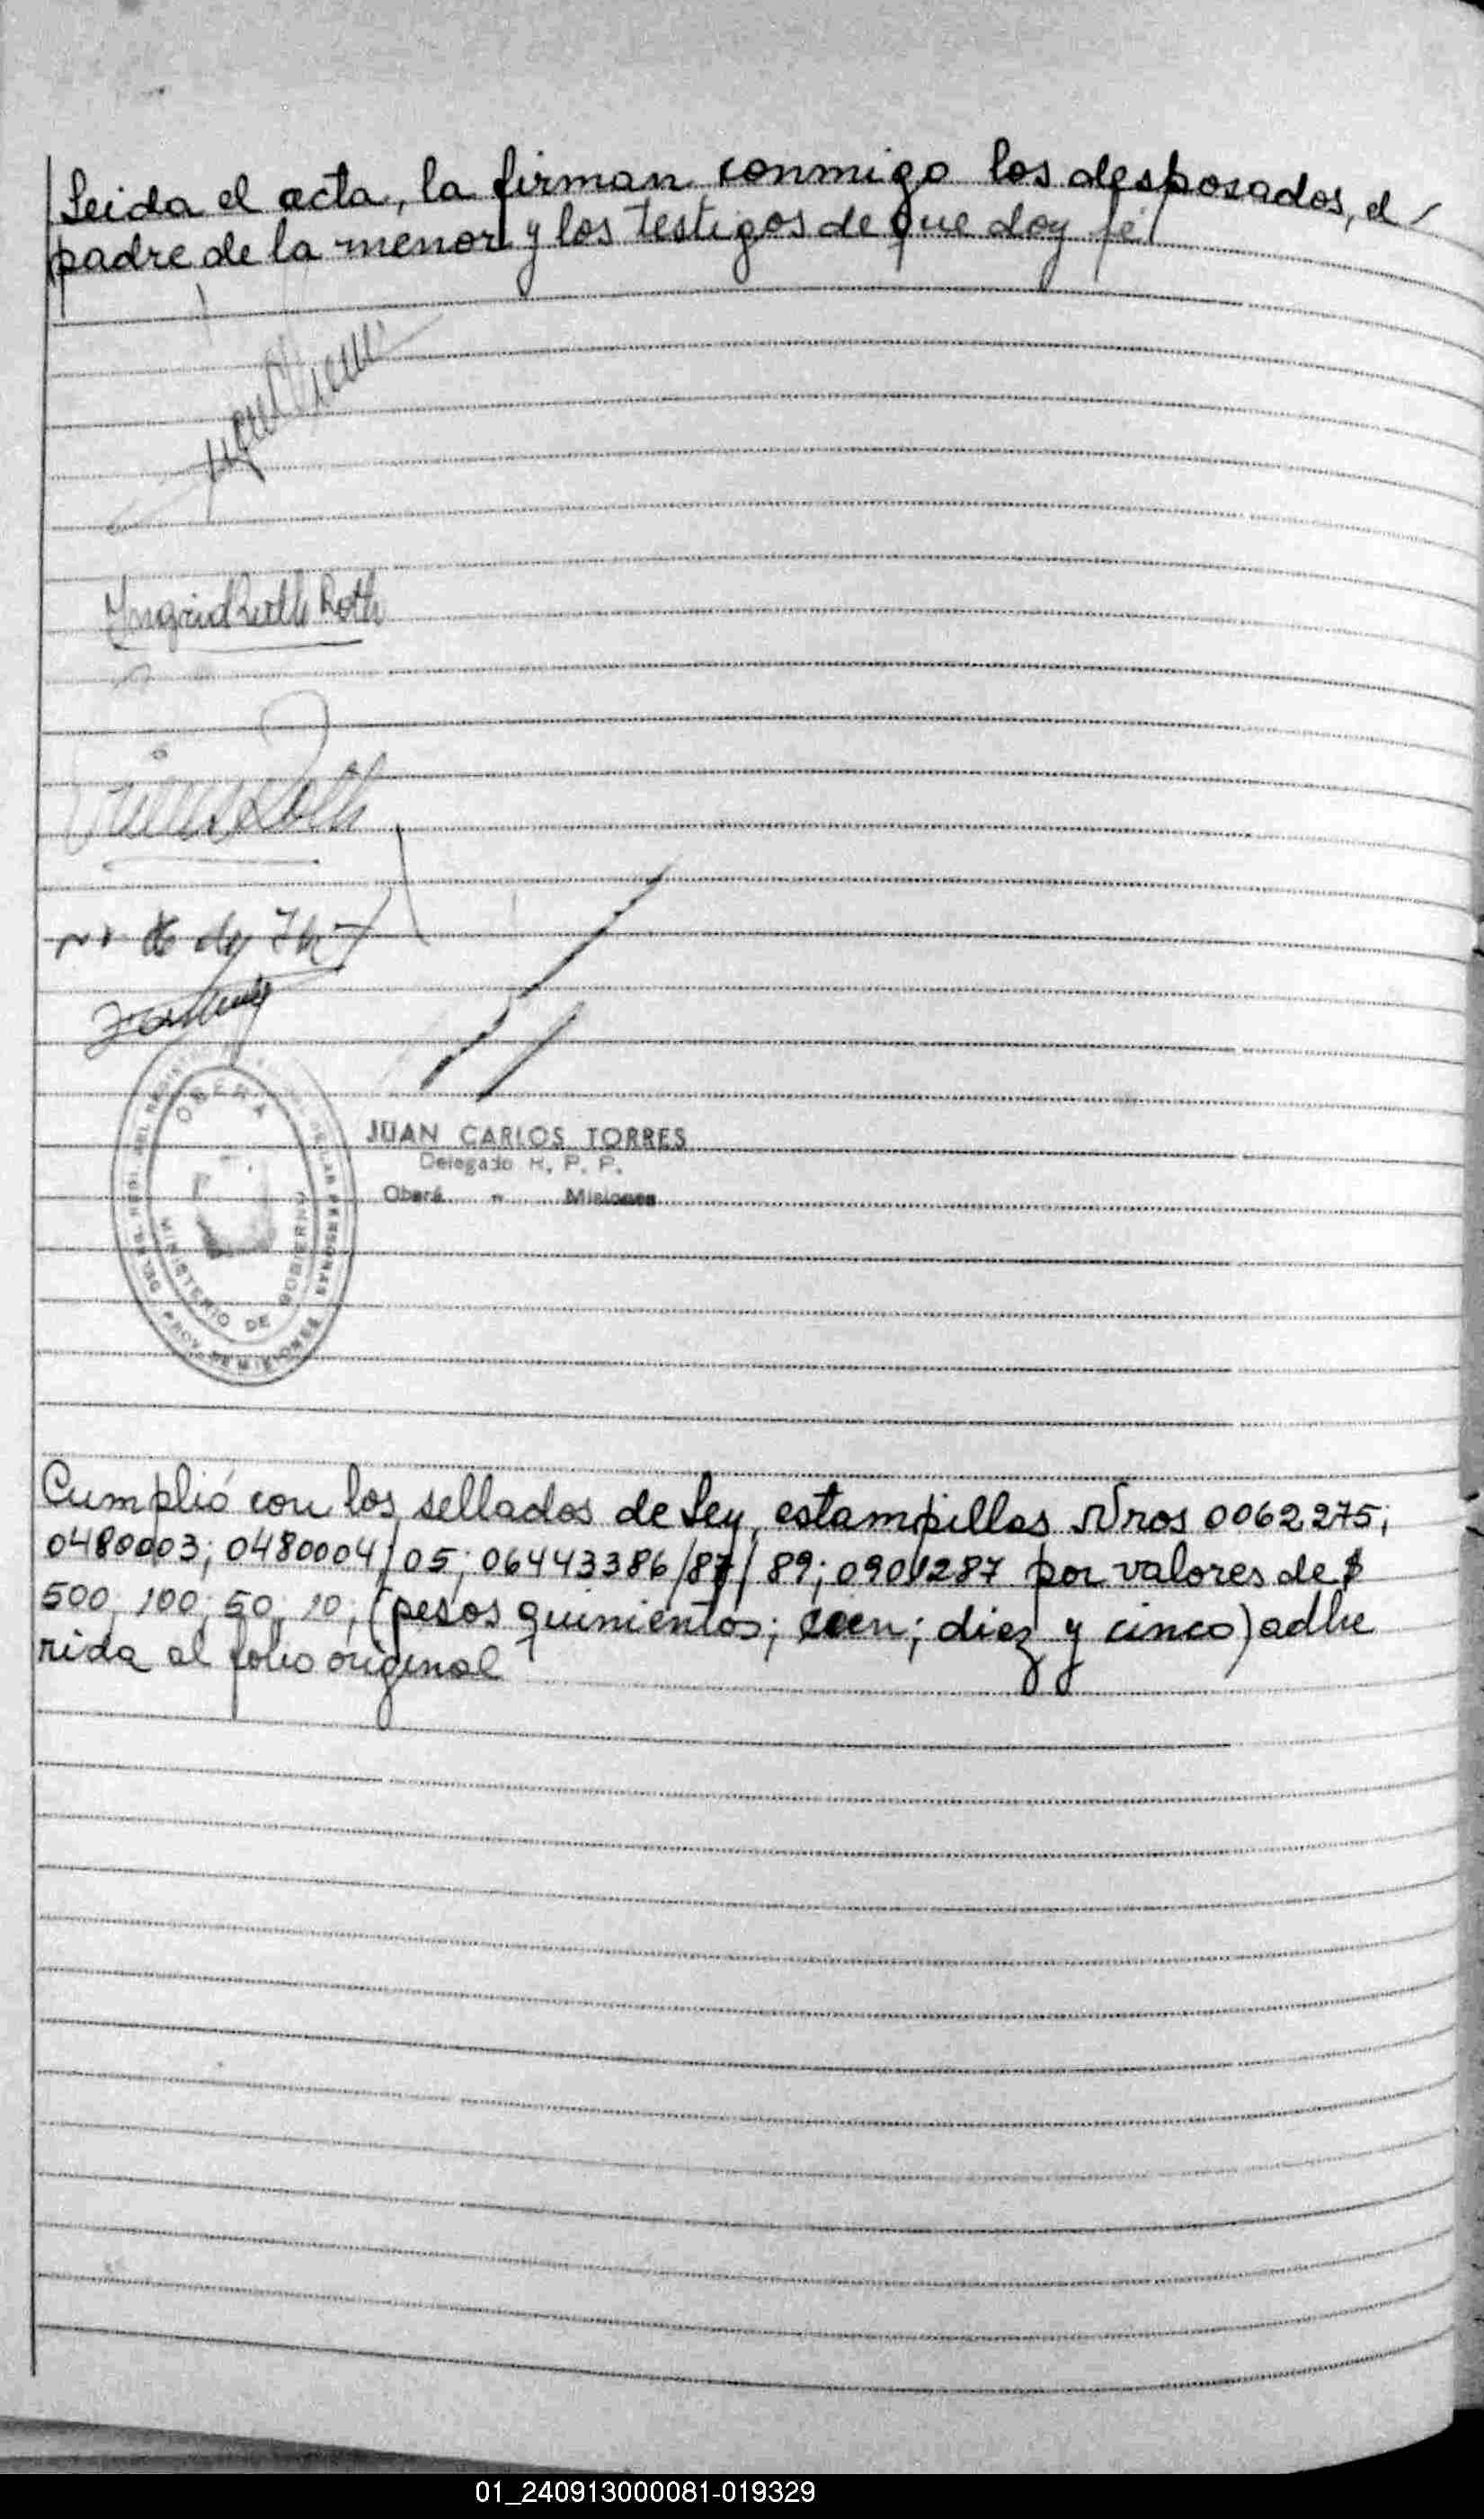 Leida el acta, la firman conmigo los desposados, el
padre de la menor y los testigos de que doy fé
Ingrid Ruth Roth
Roth
OBERA
MINISTERIO DE GOBIERNO
PROV. DE MISIONES
JUAN CARLOS TORRES
Delegado R. P. P.
Oberá - Misiones
Cumplió con los sellados de Ley, estampillas Nros 0062275;
0480003; 0480004/05; 06443386/87/89; 0901287 por valores de $
500; 100; 50; 10; (pesos quinientos; cien; diez y cinco) adhe
rida al folio original
01_240913000081-019329